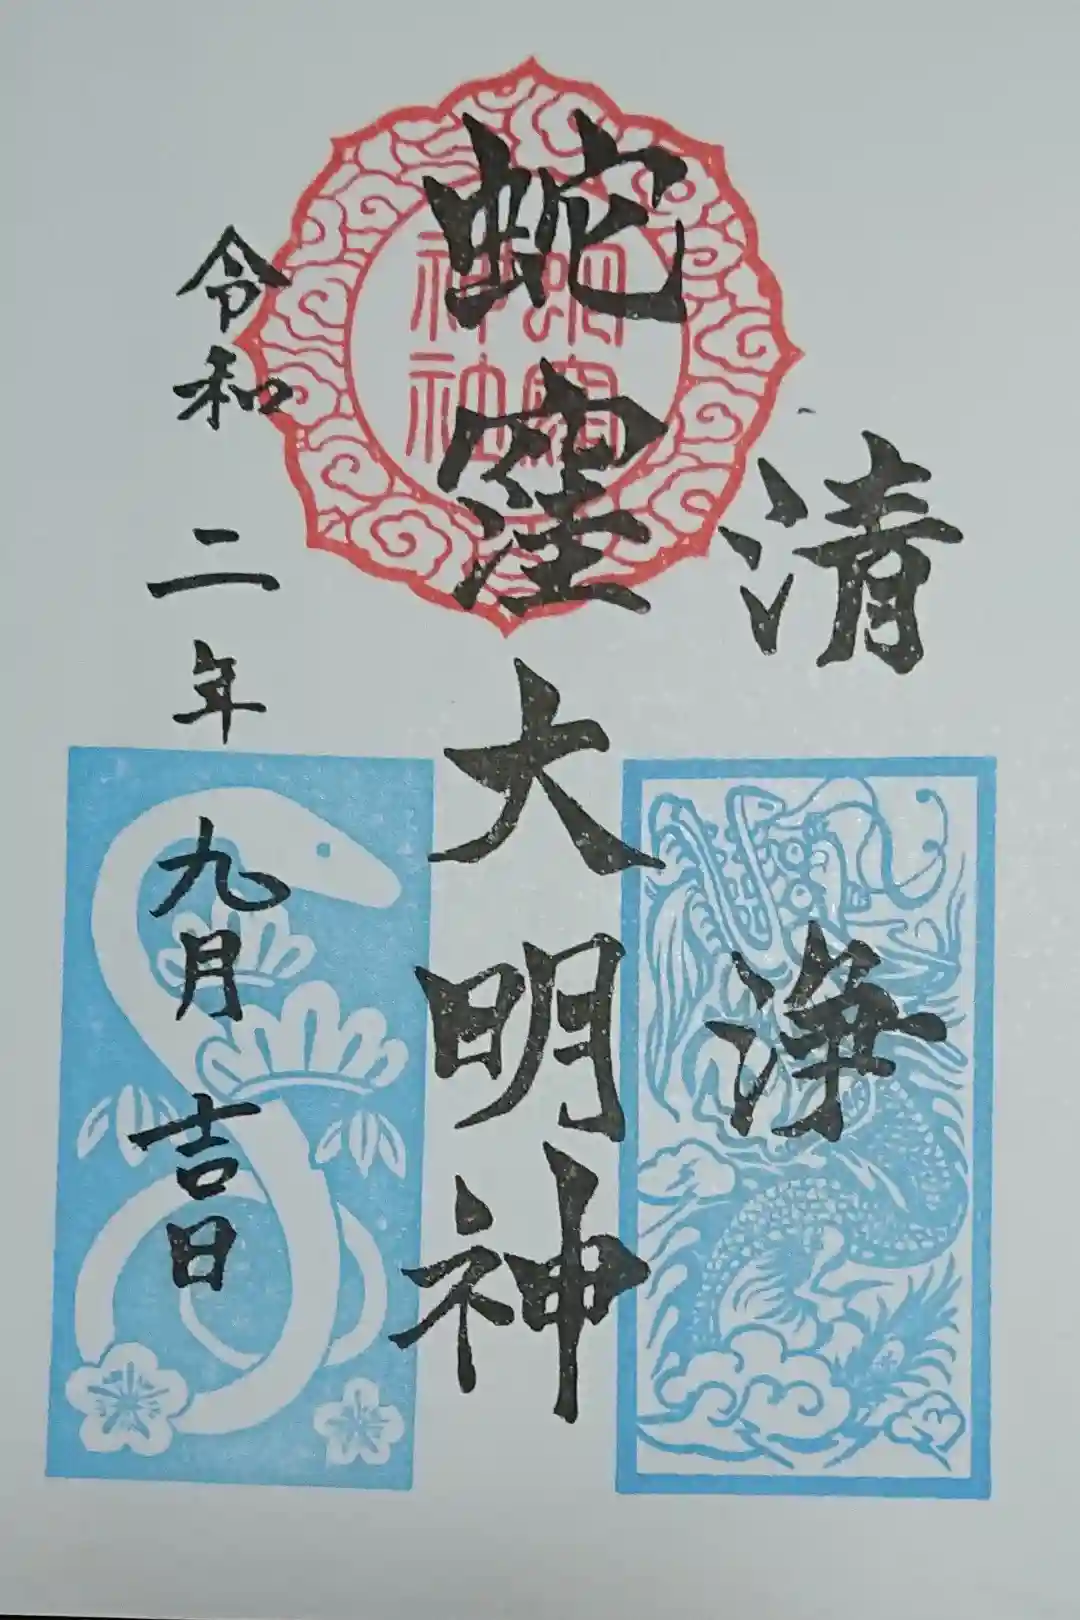 清浄
蛇窪大明神
令和二年九月吉日
蛇窪
神社